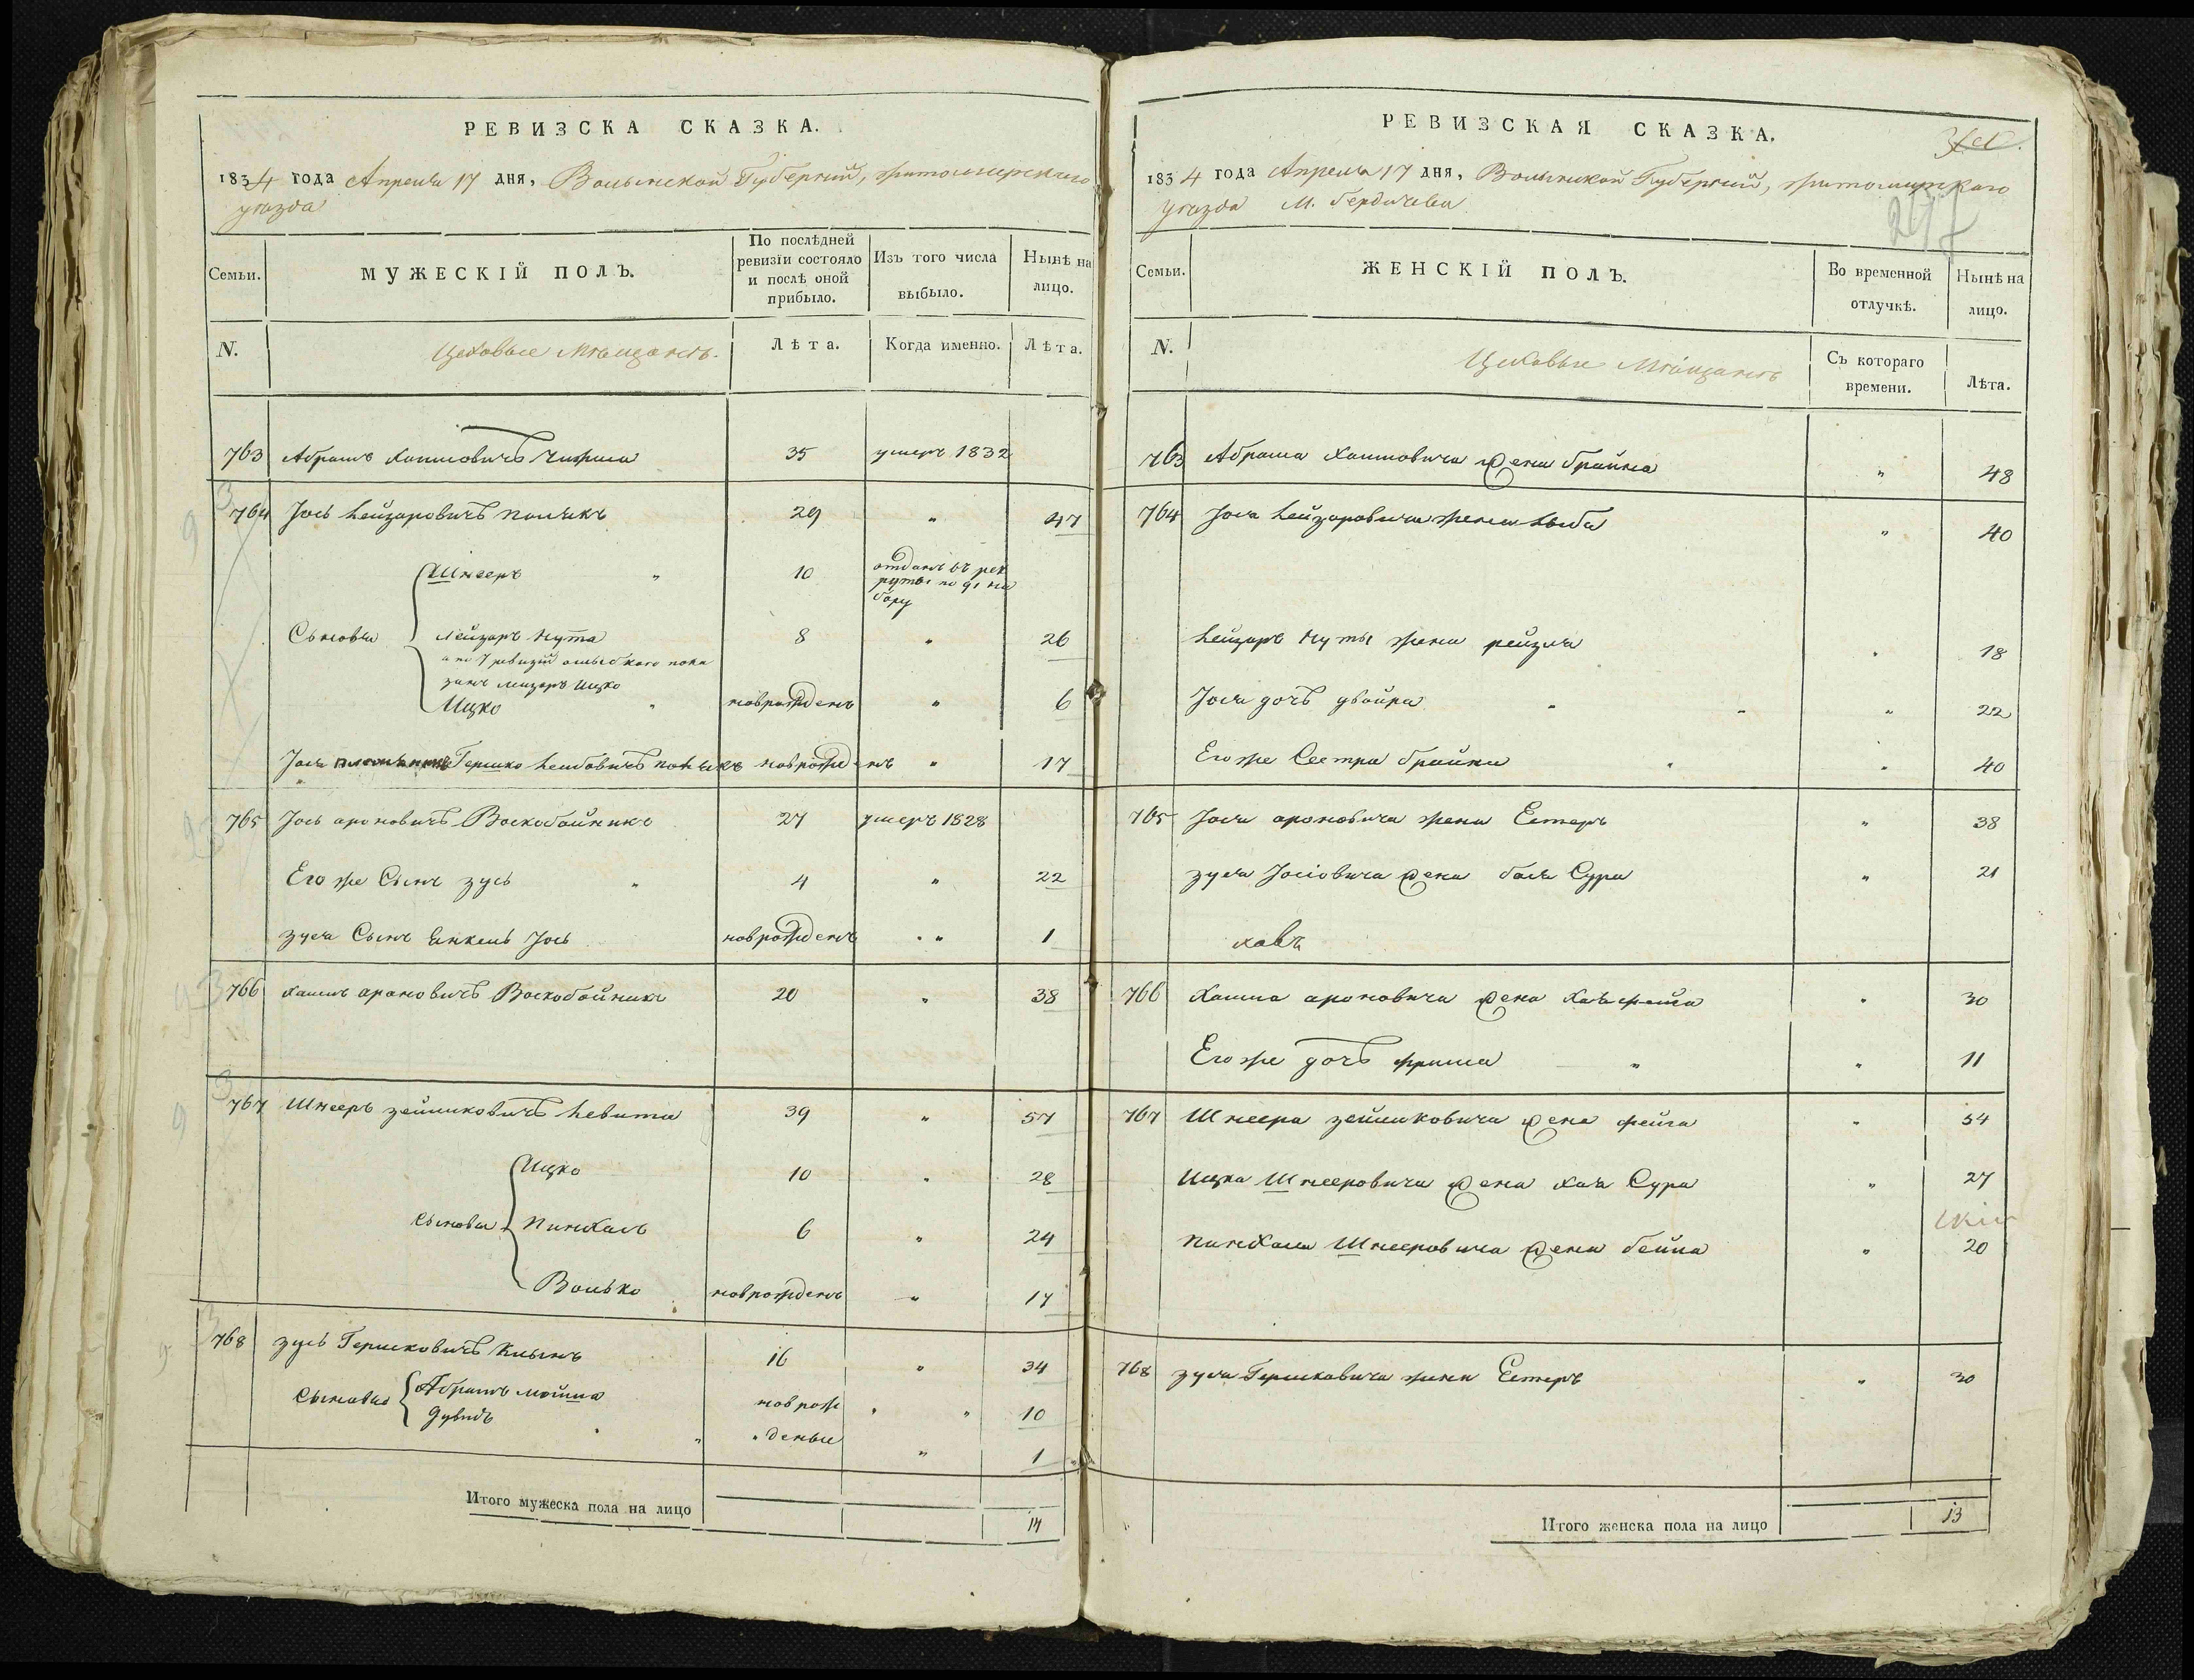 РЕВИЗСКА СКАЗКА.
1834 года Апреля 17 дня, Волынской Губерний, житомирскаго
уѣзда
Семьи.
МУЖЕСКІЙ ПОЛЪ.
По послѣдней ревизіи состояло и послѣ оной прибыло.
Изъ того числа выбыло.
Нынѣ на лицо.
N.
Цеховые Мѣщанѣ.
Лѣта.
Когда именно.
Лѣта.
763 Абрамъ Хаимовичъ 35 умеръ 1832
764 Јось Лейзоровичъ Полякъ 29 " 47
Шнееръ " 10 отданъ въ рек
руты по 91 на
бору
Сыновья Лейзоръ Нута 8 " 26
а по 7 ревизій ошибкаго пока
занъ Лейзоръ Ицко
Ицко " новрожденъ " 6
Јося Гершко Лейбовичъ Полякъ новрожденъ " 17
765 Јось ароновичъ Воскобойникъ 27 умеръ 1828
Его же Сынъ зусь " 4 " 22
зуся Сынъ Янкель Јось новрожденъ " 1
766 хаимъ ароновичъ Воскобойникъ 20 " 38
767 Шнееръ зейликовичъ Левита 39 " 57
Ицко 10 " 28
Сыновья Пинхасъ 6 " 24
Волько новрожденъ " 17
768 зусь Гершковичъ 16 " 34
Сыновья Абрамъ мошка новрож " 10
дувидъ " деные " 1
Итого мужеска пола на лицо 14
РЕВИЗСКАЯ СКАЗКА.
1834 года Апреля 17 дня, Волынской Губерний, житомирскаго
уѣзда М. Бердичева
297
Семьи.
ЖЕНСКІЙ ПОЛЪ.
Во временной отлучкѣ.
Нынѣ на лицо.
N.
Цеховые Мѣщанѣ
Съ котораго времени.
Лѣта.
763 Абрама Хаимовича жена брайна " 48
764 Јося Лейзоровича жена " 40
Лейзоръ Нуты жена рейзля " 18
Јося дочъ двойра " 22
Его же Сестра брайна " 40
765 Јося ароновича жена Естеръ " 38
зуся Јосіовича жена бася Сура " 21
766 Хаима ароновича жена хая фейга " 30
Его же дочъ фрима " 11
767 Шнеера зейликовича жена фейга " 54
Ицка Шнееровича жена хая Сура " 27
Пинхаса Шнееровича жена бейла " 20
768 зуся Гершковича жена Естеръ " 30
Итого женска пола на лицо 13